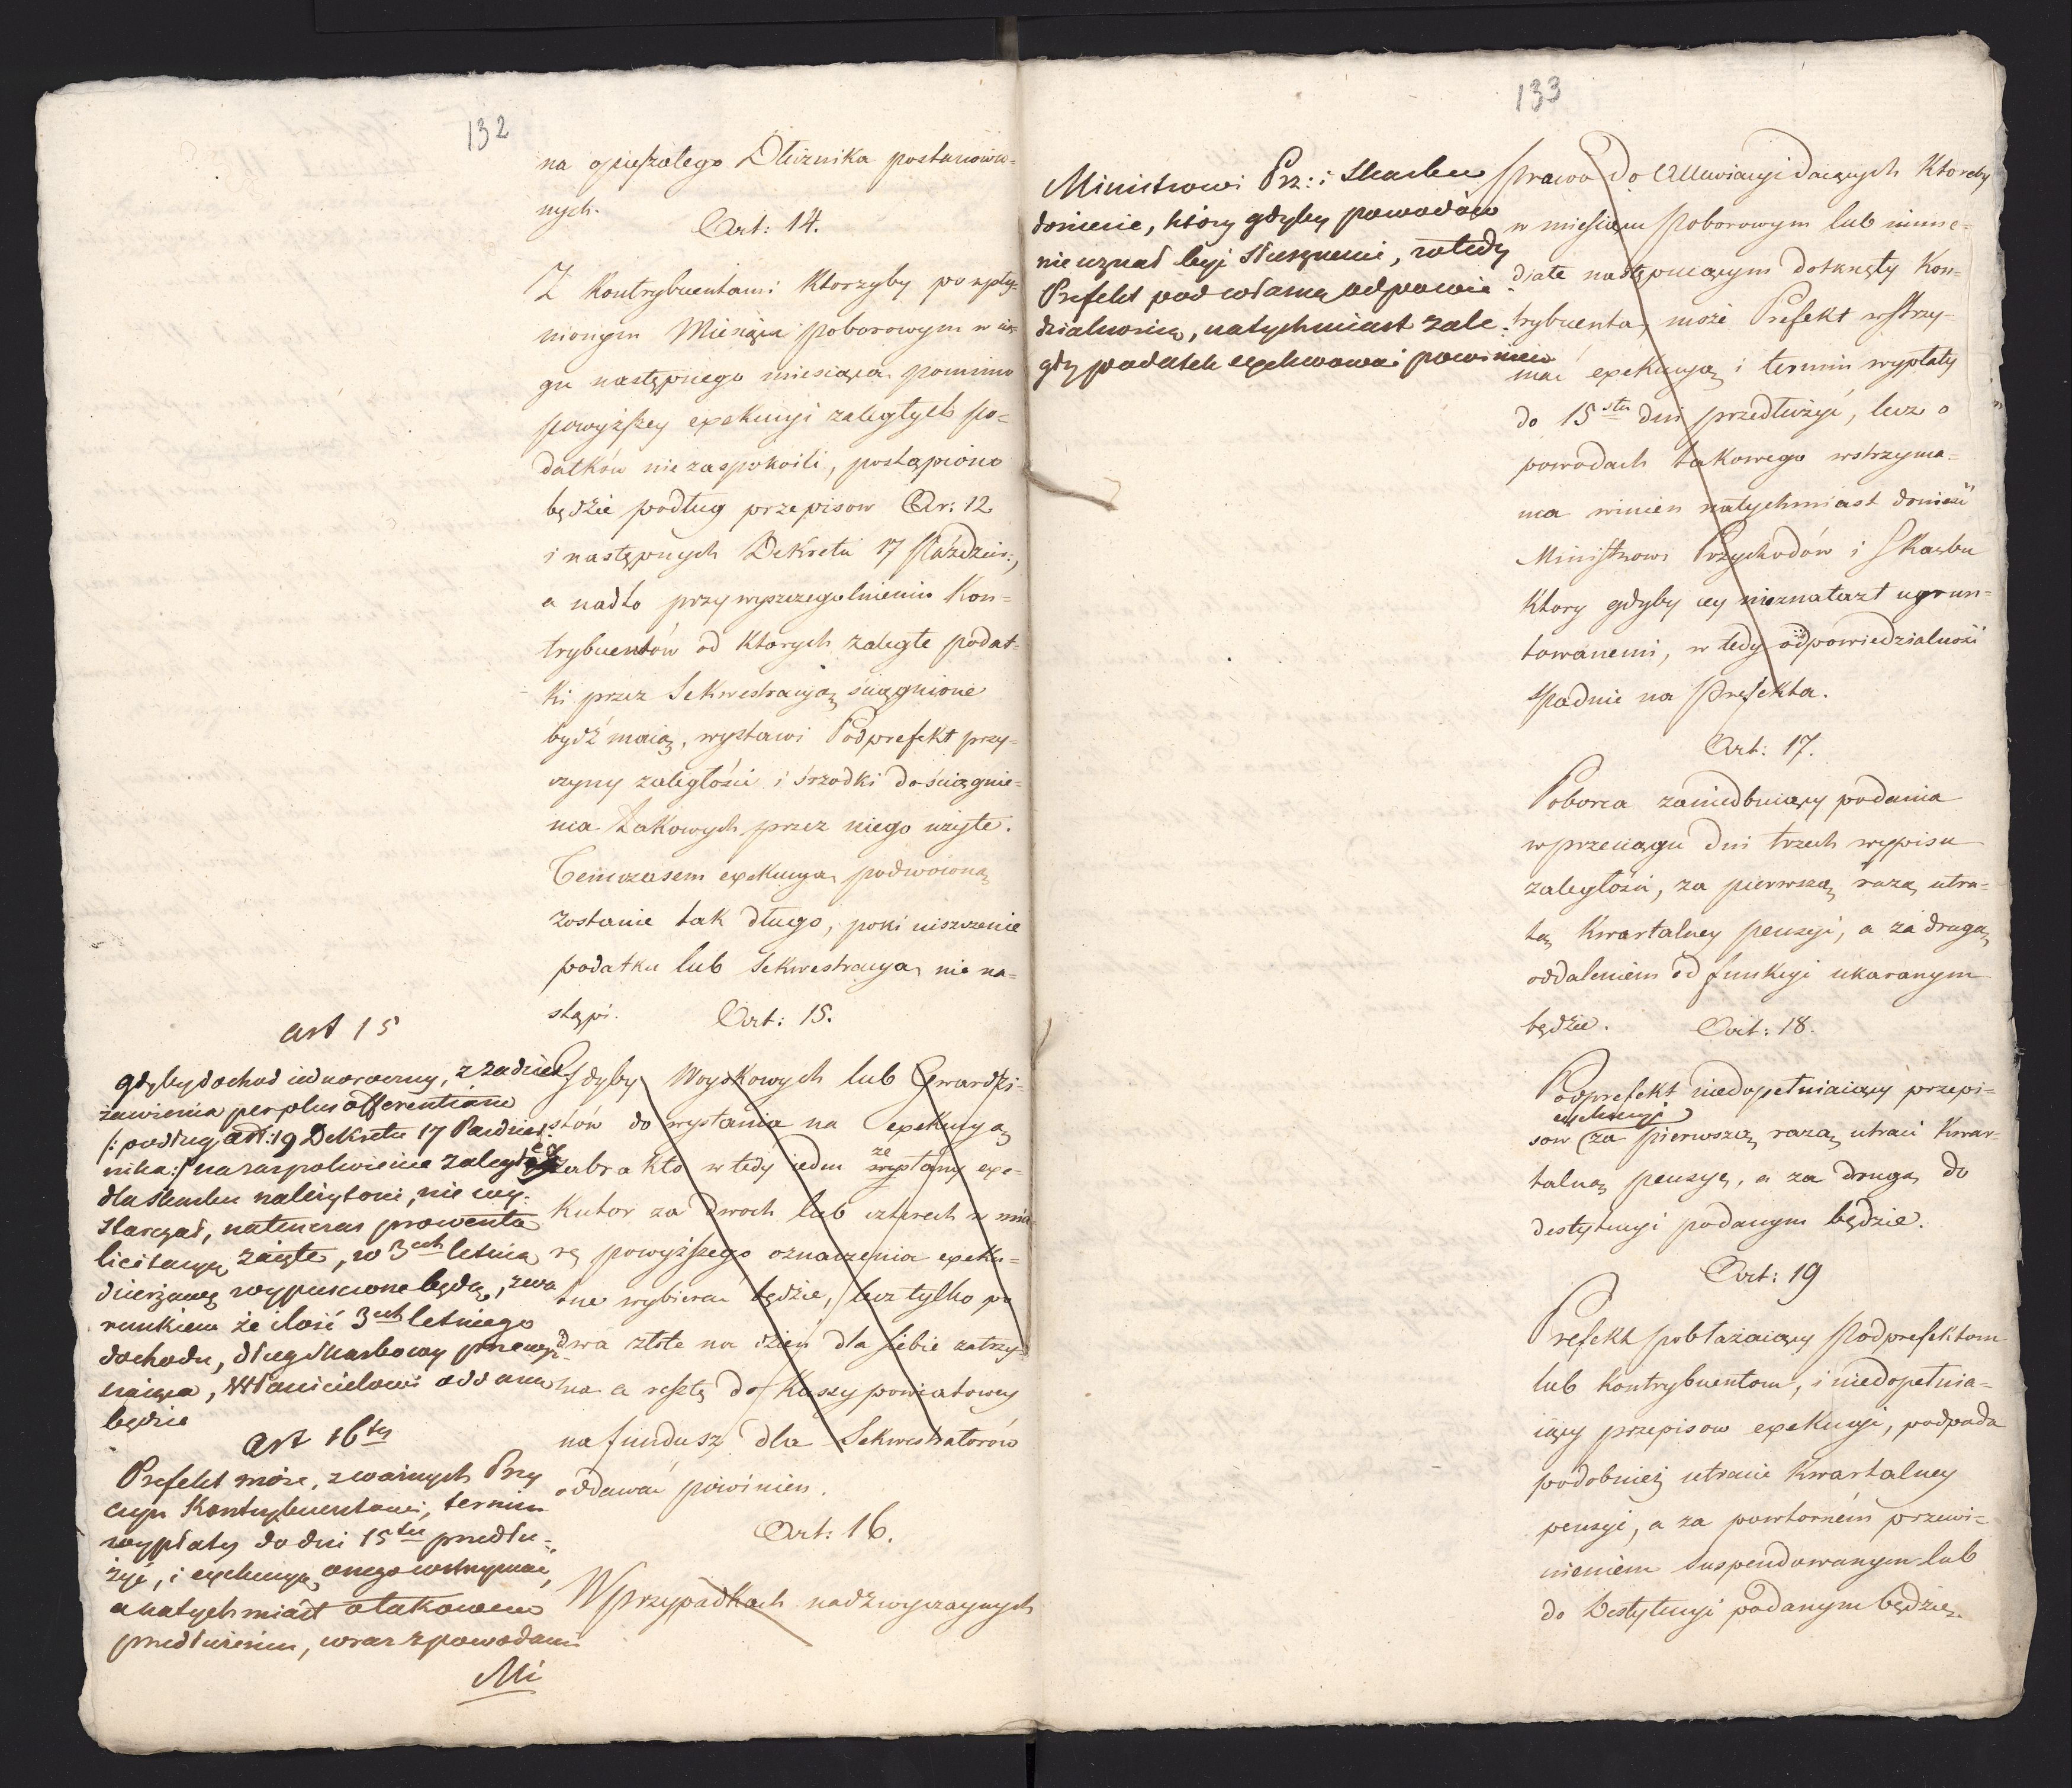 132
na opieszałego Dłużnika postanowio-
nych.
Art: 14.
Z Kontrybuentami Ktorzyby po upły-
nionym Miesiącu poborowym w cią-
gu następnego miesiąca pomimo
powyższey exekucyi zaległych po-
datków nie zaspokoili, postąpiono
będzie podług przepisow Ar: 12
i następnych Dekretu 17 Paździer:,
a nadto przy wyszczególnieniu Kon-
trybuentów od Ktorych zaległe podat-
ki przez Sekwestracyą ściągnione
bydź maią, wystawi Podprefekt przy-
czyny zaległości i śrzodki do ściągnie-
nia takowych przez niego użyte.
Tymczasem exekucya podwoioną
zostanie tak długo, poki uiszczenie
podatku lub Sekwestracya nie na-
stąpi.
Art: 15.
Gdyby Woyskowych lub Gwardzi-
stów do wysłania na Exekucyą
zabrakło wtedy ieden ze wysłany exe-
kutor za dwoch lub czterech w mia-
rę powyższego oznaczenia exeku-
tne wybierać będzie, lecz tylko po
dwa złote na dzień dla siebie zatrzy-
ma a resztę do Kassy powiatowey
na fundusz dla Sekwestratorów
oddawać powinien.
Art: 16.
W przypadkach nadzwyczaynych
art 15
gdyby dochod iednoroczny, z zadzier-
żawienia per plus offerentiam
/: podług art: 19 Dekretu 17 Paździer-
nika :/ na zaspokoienie zaległey
dla Skarbu należytości, nie wy-
starczał, natenczas prowenta
licitacyą zaięte, w 3ch letnią
dzierżawę wypuszczone będą, z wa
runkiem że ilość 3ch letniego
dochodu, dług Skarbowy przewyż-
szaiąca, Właścicielowi oddana
będzie
Art 16ty
Prefekt może, z ważnych Przy
czyn Kontrybuentowi, termin
wypłaty do dni 15tu przedłu-
żyć, i exekucyą onego wstrzymać,
a natychmiast o takowem
przedłużeniu, wraz z powodami
Mi
133
Ministrowi Prz: i Skarbu
doniesie, który gdyby powodów
nie uznał być słusznemi, wtedy
Prefekt pod własną odpowie-
dzialnością, natychmiast zale-
gły podatek exekwować powinien
prawo do Allewiacyi daiących Ktoreby
w miesiącu poborowym lub imme-
diate następuiącym dotknęły Kon-
trybuenta, może Prefekt wstrzy-
mać exekucyą i termin wypłaty
do 15stu dni przedłużyć, lecz o
powodach takowego wstrzyma-
nia winien natychmiast donieść
Ministrowi Przychodów i Skarbu
Ktory gdyby ich nieznalazł ugrun-
towanemi, wtedy odpowiedzialność
spadnie na Prefekta.
Art: 17.
Poborca zaniedbuiący podania
w przeciągu dni trzech wypisu
zaległości, za pierwszą razą utra-
tą Kwartalney pensyi, a za drugą
oddaleniem od funkcyi ukaranym
będzie.
Art: 18.
Podprefekt niedopełniaiący przepi-
sow exekucyi za pierwszą razą utraci Kwar-
talną pensyę, a za drugą do
destytucyi podanym będzie.
Art: 19
Prefekt pobłażaiący Podprefektom
lub Kontrybuentom, i niedopełnia-
iący przepisow exekucyi, podpada
podobnież utracie Kwartalney
pensyi, a za powtorném przewi-
nieniem suspendowanym lub
do Destytucyi podanym będzie.